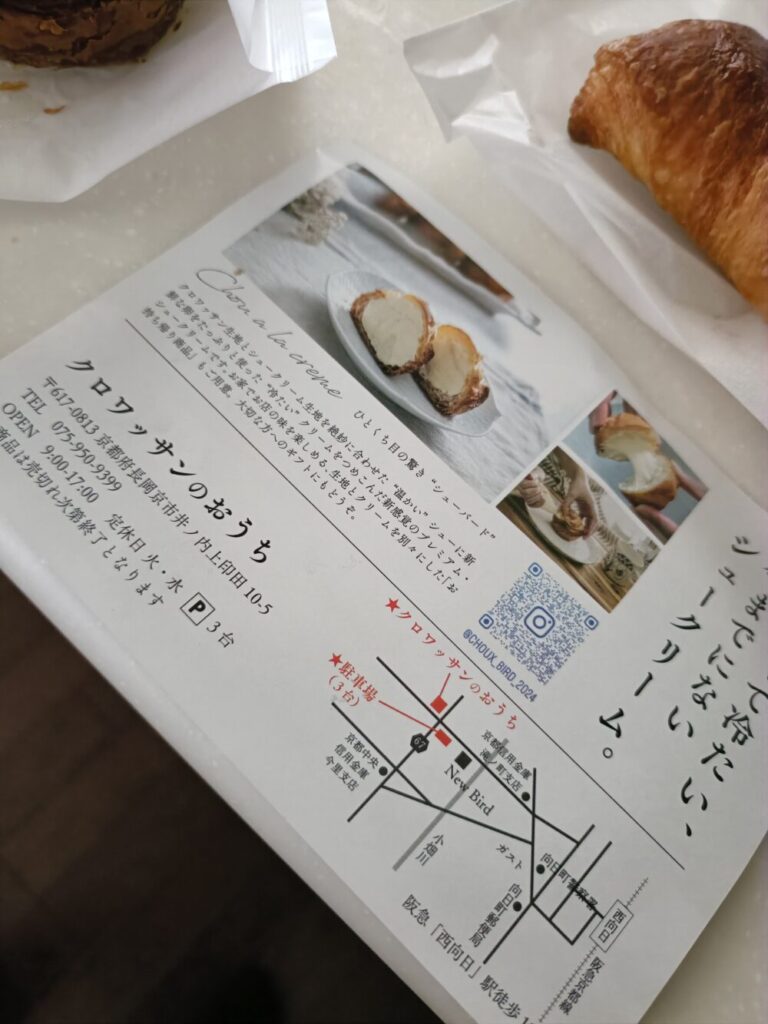 て冷たい、
までにない
シュークリーム。
Chou a la creme
ひとくち目の驚き “シューバード”
クロワッサン生地とシュークリーム生地を絶妙に合わせた “温かい” シューに新
鮮な卵をたっぷりと使った “冷たい” クリームをつめこんだ新感覚のプレミアム・
シュークリームです。お家でお店の味を楽しめる、生地とクリームを別々にした「お
持ち帰り商品」もご用意。大切な方へのギフトにもどうぞ。
@CHOUX_BIRD_2024
クロワッサンのおうち
〒617-0813 京都府長岡京市井ノ内上印田 10-5
TEL 075-950-9399
OPEN 9:00-17:00 定休日 火・水 P 3台
商品は売切れ次第終了となります
★クロワッサンのおうち
★駐車場
(3台)
67
New Bird
京都信用金庫
滝ノ町支店
京都中央
信用金庫
今里支店
小畑川
ガスト
向日町警察署
向日町郵便局
西向日
阪急京都線
阪急「西向日」駅徒歩1